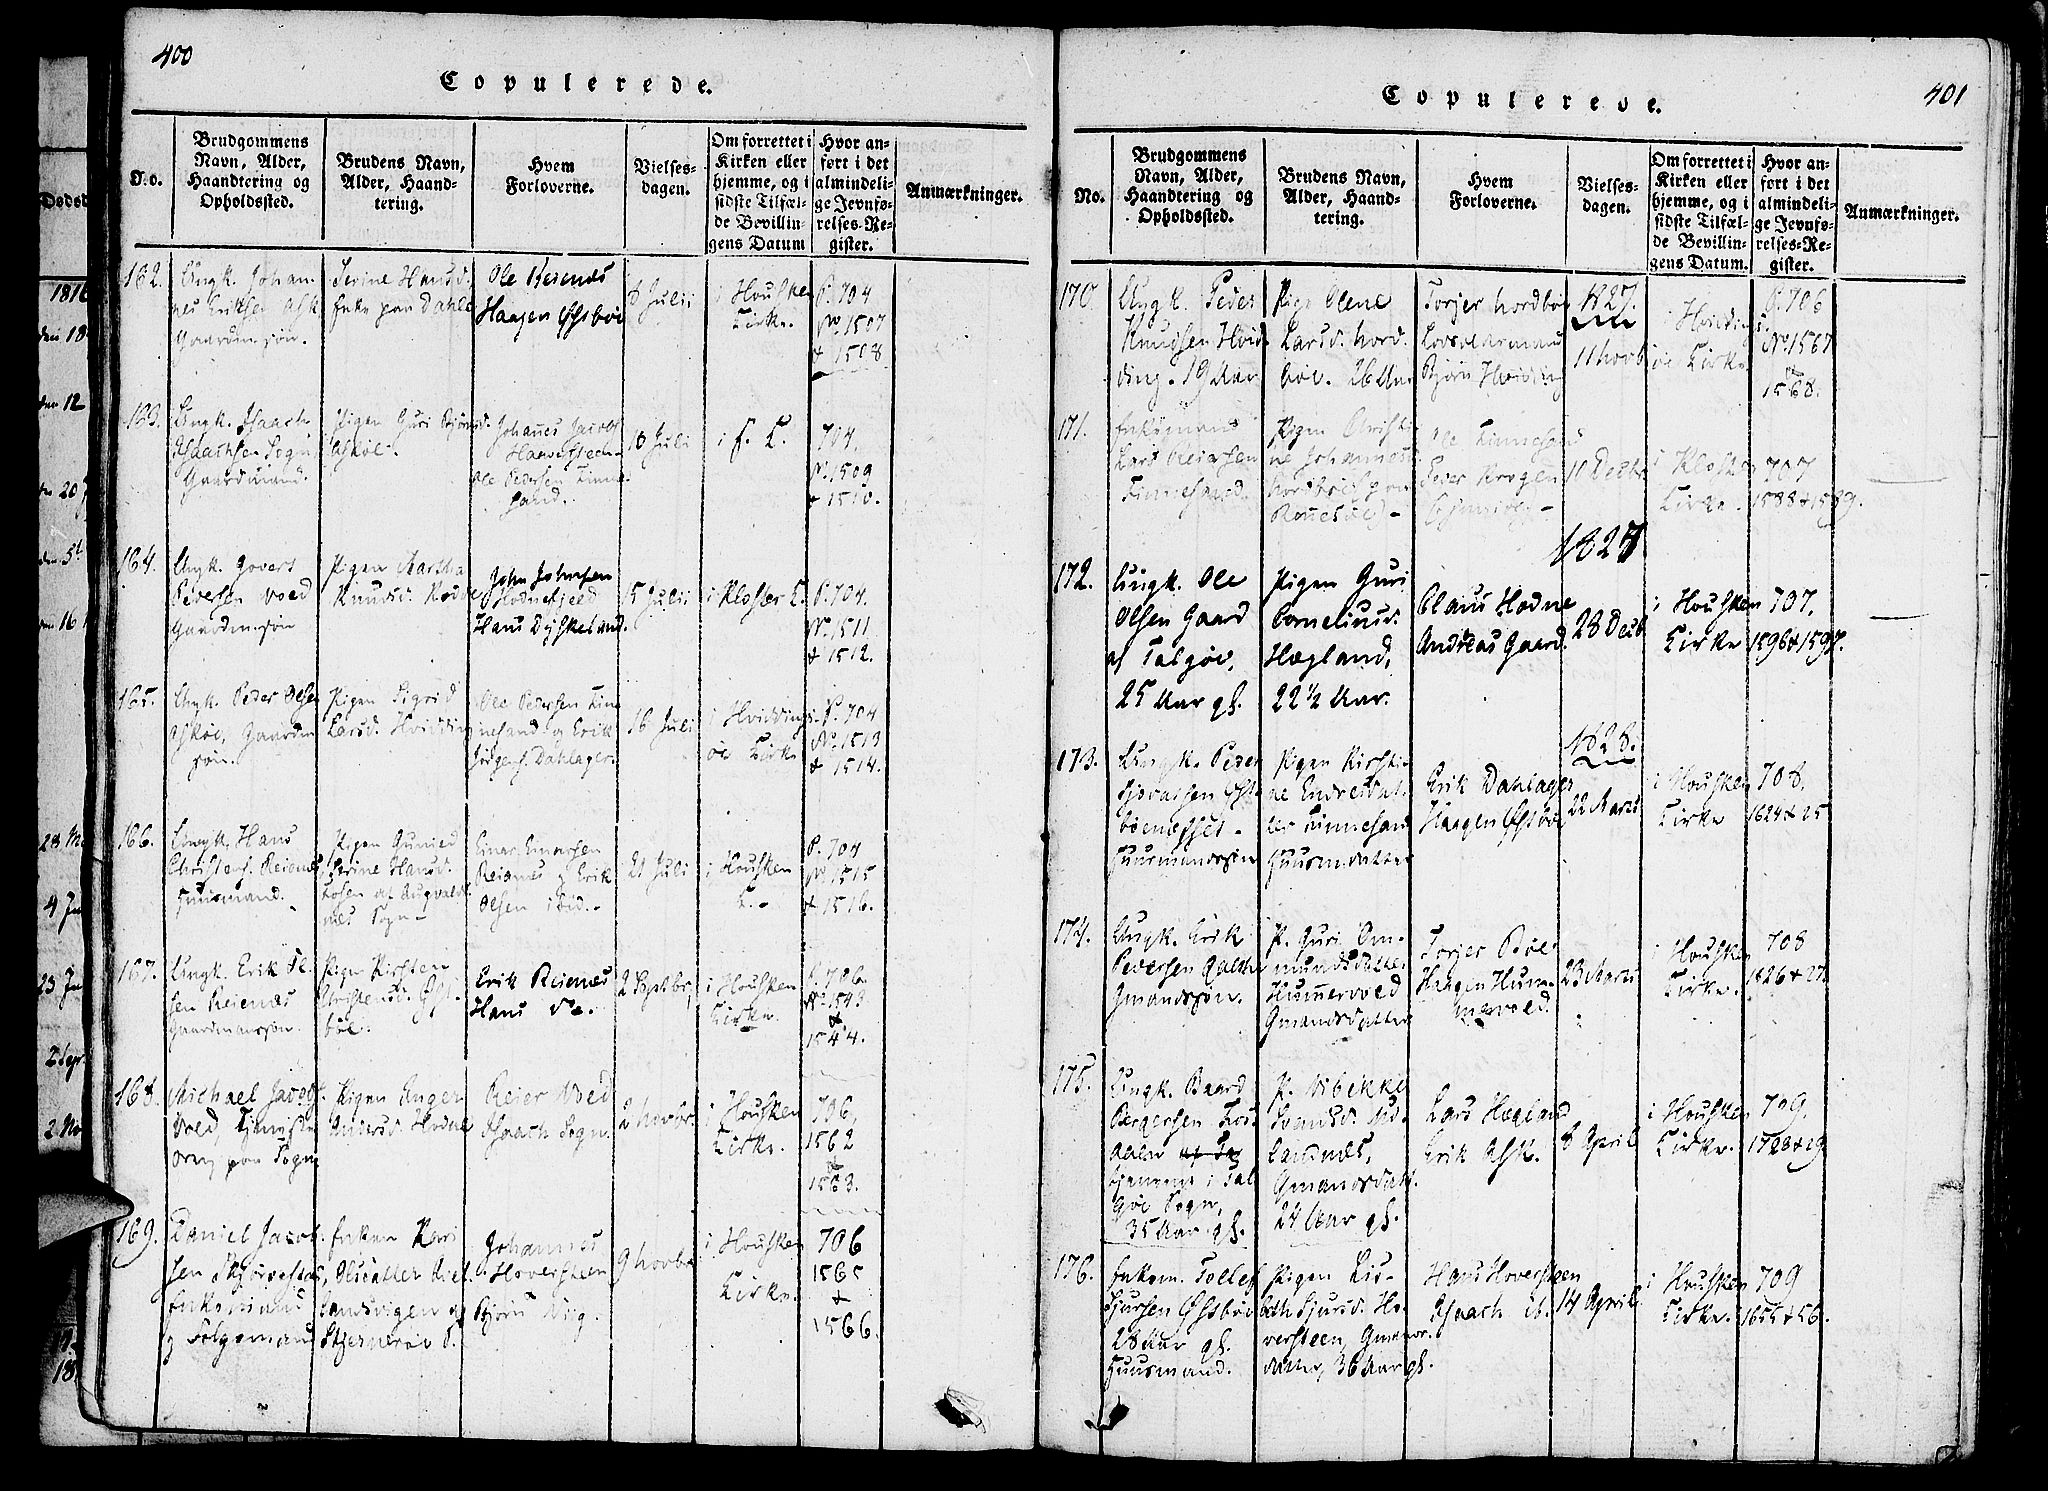 400
Copulerede.
No.
Brudgommens
Navn, Alder,
Haandtering og
Opholdssted.
Brudens Navn,
Alder, Haand-
tering.
Hvem
Forloverne.
Vielses-
dagen.
Om forrettet i
Kirken eller
hjemme, og i
sidste Tilfæl-
de Bevillin-
gens Datum
Hvor an-
ført i det
almindeli-
ge Jevnfø-
relses-Re-
gister.
Anmærkninger.
162.
Ungk. Johan-
nes Eriksen Ask
Gaardm. søn.
Serine Hansd.
Enke paa Dahle
Ole Reienæs
Haagen Østbøe
8 Julii
i Housken
Kirke.
P. 704
No. 1507
& 1508
163.
Ungk. Isaach
Isaachsen Sogn
Gaardmand.
Pigen Guri Biørnsd.
Askøe.
Johanes Jacobs.
Haaversteen
Ole Pedersen Finne-
sand.
10 Juli
i H. K.
704.
No. 1509
& 1510.
164.
Ungk. Govert
Pedersen Voed
Gaardm. søn
Pigen Martha
Knudsd.
John Johnsen
Hodnefjeld
Hans Dyskeland.
15 Julii
i Kloster K.
P. 704.
No. 1511
& 1512.
165.
Ungk. Peder Olsen
Askøe, Gaardm
søn.
Pigen Sigrid
Larsd. Hvidding
Ole Pedersen Fin-
nesand og Erik
Dahlager.
16 Juli
i Hviddings-
øe Kirke
P. 704
No. 1513
& 1514.
166.
Ungk. Hans
Christens. Reienæs
Huusmand.
Pigen
Serine Hansd.
af Augvalds-
næs Sogn
Einar Einarsen
Reienæs og Erik
Olsen ibid.
21 Juli
i Housken
K.
P. 704
No. 1515
& 1516.
167.
Ungk. Erik Ol-
sen Reienæs
Gaardmanssøn.
Pigen Kirsten
Christensd. Øst-
bøe.
Erik Reienæs
Hans do.
2 Septbr.
i Housken
Kirke.
P. 706
No. 1543
&
1544.
168.
Michael Jacobs.
Voed, Tjeniste-
dreng paa Sogn
Pigen Inger
Anersd. Hodne
Reier Voed
Isaach Sogn.
2 Novbr.
i Housken
Kirke.
706,
1562
&
1563.
169.
Daniel Jacob-
sen
Enkemand
og Følgemand
Enken Kari
Olsdatter
og
Stjernerøe P.
Johannes
Hoversteen
Biørn Viig.
9 Novbr.
i Housken
Kirke.
706
1565
&
1566.
401
Copulerede.
No.
Brudgommens
Navn, Alder,
Haandtering og
Opholdssted.
Brudens Navn,
Alder, Haand-
tering.
Hvem
Forloverne.
Vielses-
dagen.
Om forrettet i
Kirken eller
hjemme, og i
sidste Tilfæl-
de Bevillin-
gens Datum.
Hvor an-
ført i det
almindeli-
ge Jevnfø-
relses-Re-
gister.
Anmærkninger.
170.
Ungk. Peder
Knudsen Hvid-
ding. 19 Aar
Pige Olene
Larsd. Nord-
bøe. 26 Aar
Torjer Nordbøe
Bjørn Hvidding
1827.
11 Novb.
i Hviddings-
øe Kirke
P. 706
No. 1567
&
1568.
171.
Enkemand
Lars Reiersen
Finnesand.
Pigen Christi-
ne Johannesd.
Nordbøe paa
Rennesøe
Ole Finnesand
Peder Krogen
10 Decbr.
i Kloster
Kirke.
707
1588 & 1589.
172.
Ungk. Ole
Olsen Gaard
af Talgøe,
25 Aar gl.
Pigen Guri
Corneliusd.
Hægland,
22 1/2 Aar.
Claus Hodne
Andreas Gaard.
1827
28 Decb.
i Houskens
Kirke
707.
1596 & 1597.
173.
Ungk. Peder
Østbøeneset
Huusmandssøn
Pigen Kirsti-
ne Endresdat-
ter Finnesand
Huusm. datter
Erik Dahlager
Haagen Østbøe
1828.
22 Marts
i Houskens
Kirke
708.
1624 & 25
174.
Ungk. Erik
Pedersen Galthe
Gmandssøn.
P. Guri Om-
mundsdatter
Hummervoed
Gmandsdatter
Torjer Bøe
Haagen Hum-
mervoed.
23 Marts
i Houskens
Kirke.
708
1626 & 27.
175.
Ungk. Baard
tjenende i Tal-
gøe Sogn,
35 Aar gl.
P. Vibekke
Svendsd.
landnæs,
Gmandsdat.
24 Aar gl.
Lars Hægland
Erik Ask.
8 April
i Houskens
Kirke.
709.
1728 & 29
176.
Enkem. Tollef
Sjursen Østbøe
28 Aar gl.
Huusmand.
Pigen Lis-
beth Sjursd. Ho-
versteen, Gmands-
datter, 36 Aar gl.
Hans Hoversteen
Isaach ib.
14 April
i Houskens
Kirke.
709
1655 & 56.